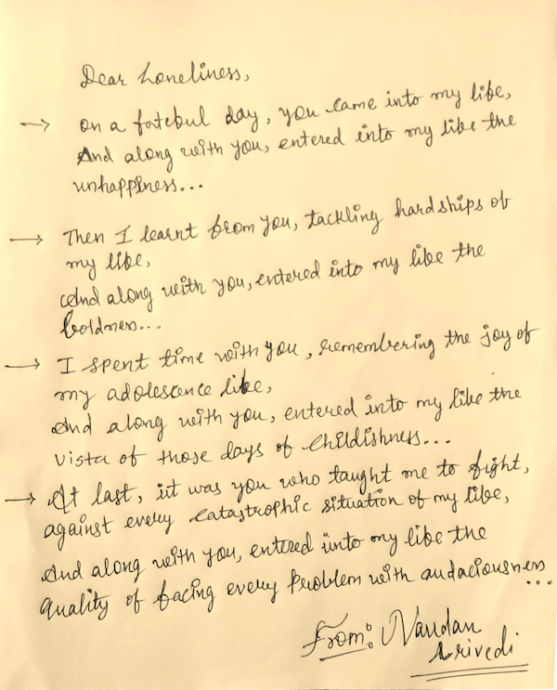 Dear Loneliness,
→ On a fateful day, you came into my life,
And along with you, entered into my life the
unhappiness...
→ Then I learnt from you, tackling hardships of
my life,
And along with you, entered into my life the
boldness...
→ I spent time with you, remembering the joy of
my adolescence life,
And along with you, entered into my life the
vista of those days of childishness...
→ At last, it was you who taught me to fight,
against every catastrophic situation of my life,
And along with you, entered into my life the
quality of facing every problem with audaciousness...
From: Nandan
Trivedi